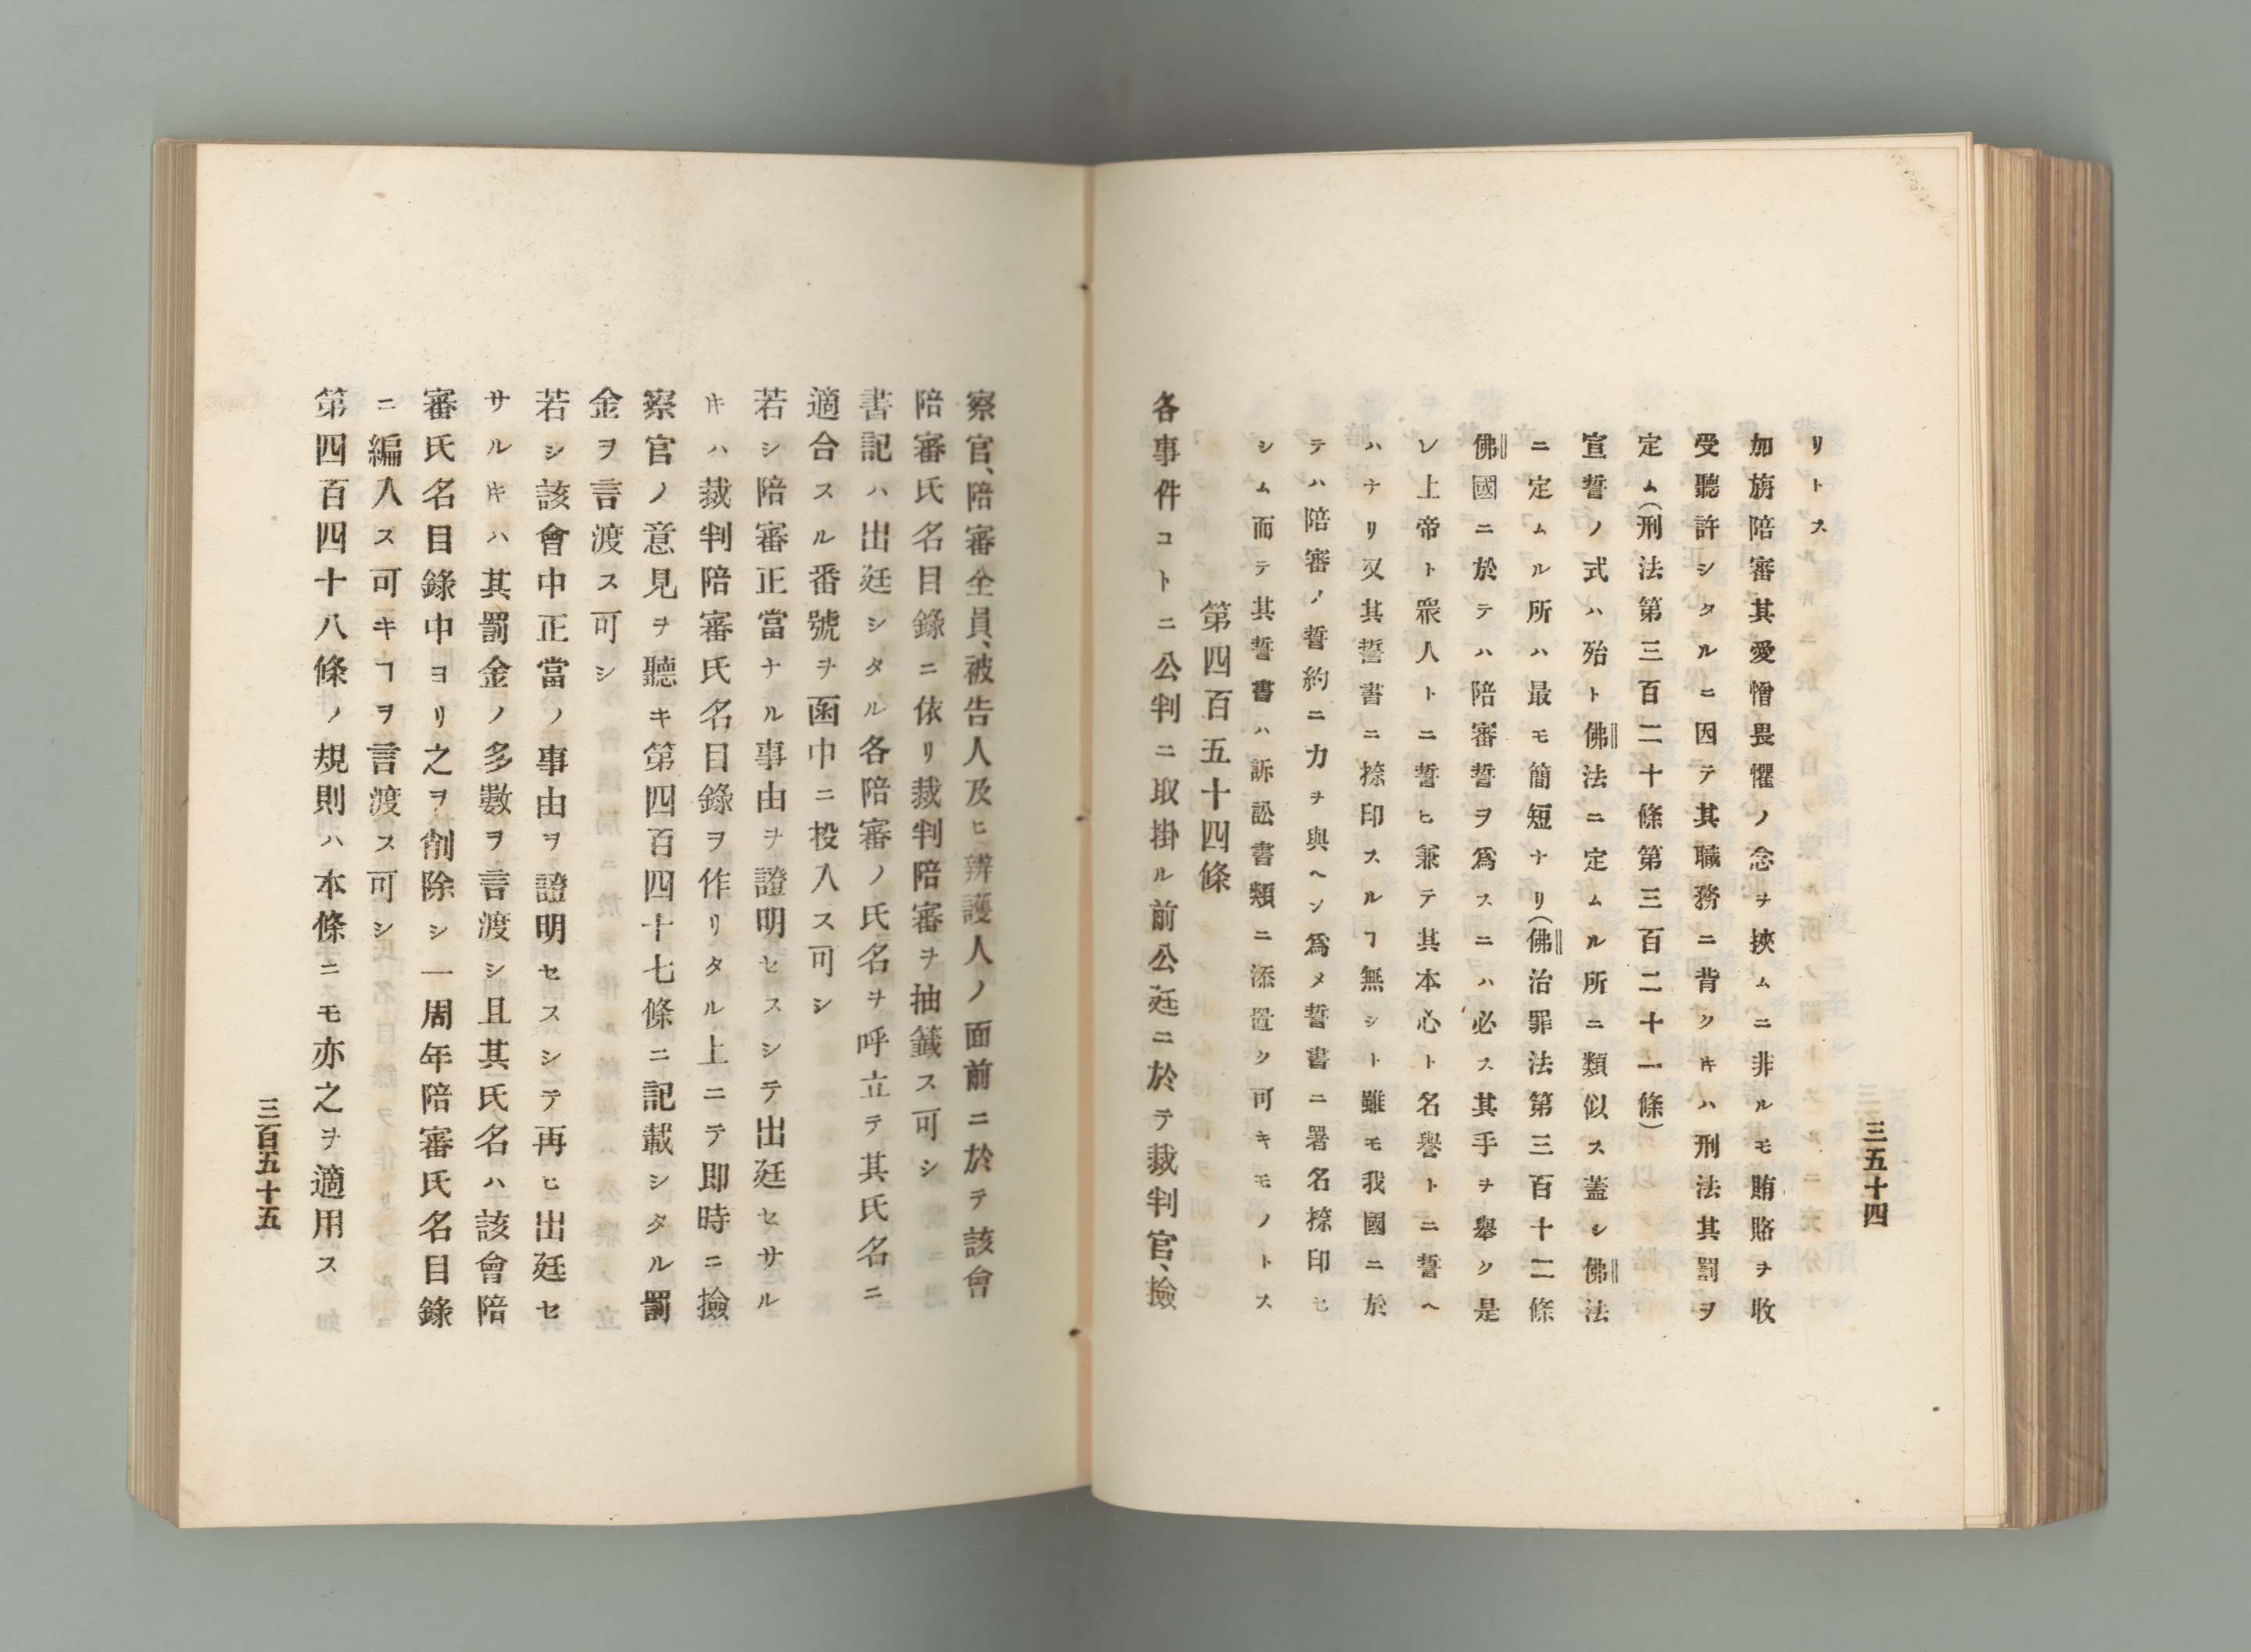 三百五十四
リトス
加旃陪審其愛憎畏懼ノ念ヲ挾ムニ非ルモ賄賂ヲ收
受聽許シタルニ因テ其職務ニ背クキハ刑法其罰ヲ
定ム(刑法第三百二十條第三百二十一條)
宣誓ノ式ハ殆ト佛法ニ定ムル所ニ類似ス蓋シ佛法
ニ定ムル所ハ最モ簡短ナリ(佛治罪法第三百十二條
佛國ニ於テハ陪審誓ヲ爲スニハ必ス其手ヲ舉ク是
レ上帝ト衆人トニ誓ヒ兼テ其本心ト名譽トニ誓ヘ
ハナリ又其誓書ニ捺印スルヿ無シト雖モ我國ニ於
テハ陪審ノ誓約ニ力ヲ與ヘン爲メ誓書ニ署名捺印セ
シム而テ其誓書ハ訴訟書類ニ添置ク可キモノトス
第四百五十四條
各事件コトニ公判ニ取掛ル前公廷ニ於テ裁判官、撿
察官、陪審全員、被告人及ヒ辨護人ノ面前ニ於テ該會
陪審氏名目錄ニ依リ裁判陪審ヲ抽籤ス可シ
書記ハ出廷シタル各陪審ノ氏名ヲ呼立テ其氏名ニ
適合スル番號ヲ函中ニ投入ス可シ
若シ陪審正當ナル事由ヲ證明セスシテ出廷セサル
キハ裁判陪審氏名目錄ヲ作リタル上ニテ即時ニ撿
察官ノ意見ヲ聽キ第四百四十七條ニ記載シタル罰
金ヲ言渡ス可シ
若シ該會中正當ノ事由ヲ證明セスシテ再ヒ出廷セ
サルキハ其罰金ノ多數ヲ言渡シ且其氏名ハ該會陪
審氏名目錄中ヨリ之ヲ削除シ一周年陪審氏名目錄
ニ編入ス可キヿヲ言渡ス可シ
第四百四十八條ノ規則ハ本條ニモ亦之ヲ適用ス
三百五十五